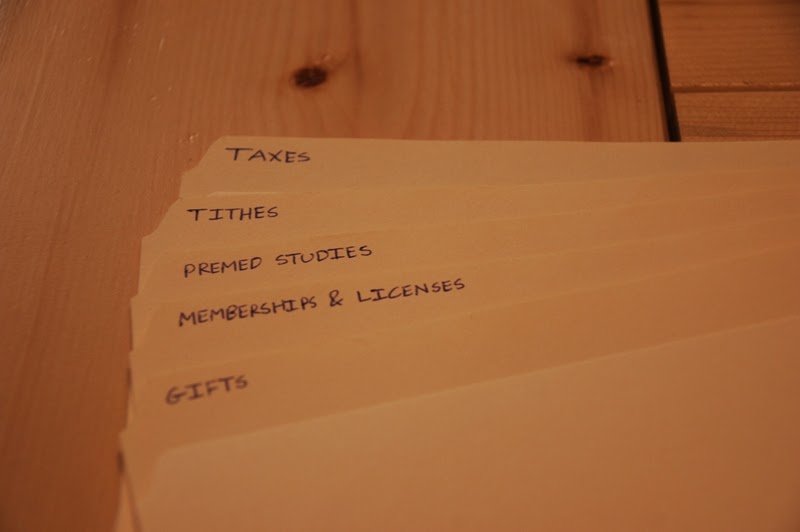 TAXES
TITHES
PREMED STUDIES
MEMBERSHIPS & LICENSES
GIFTS